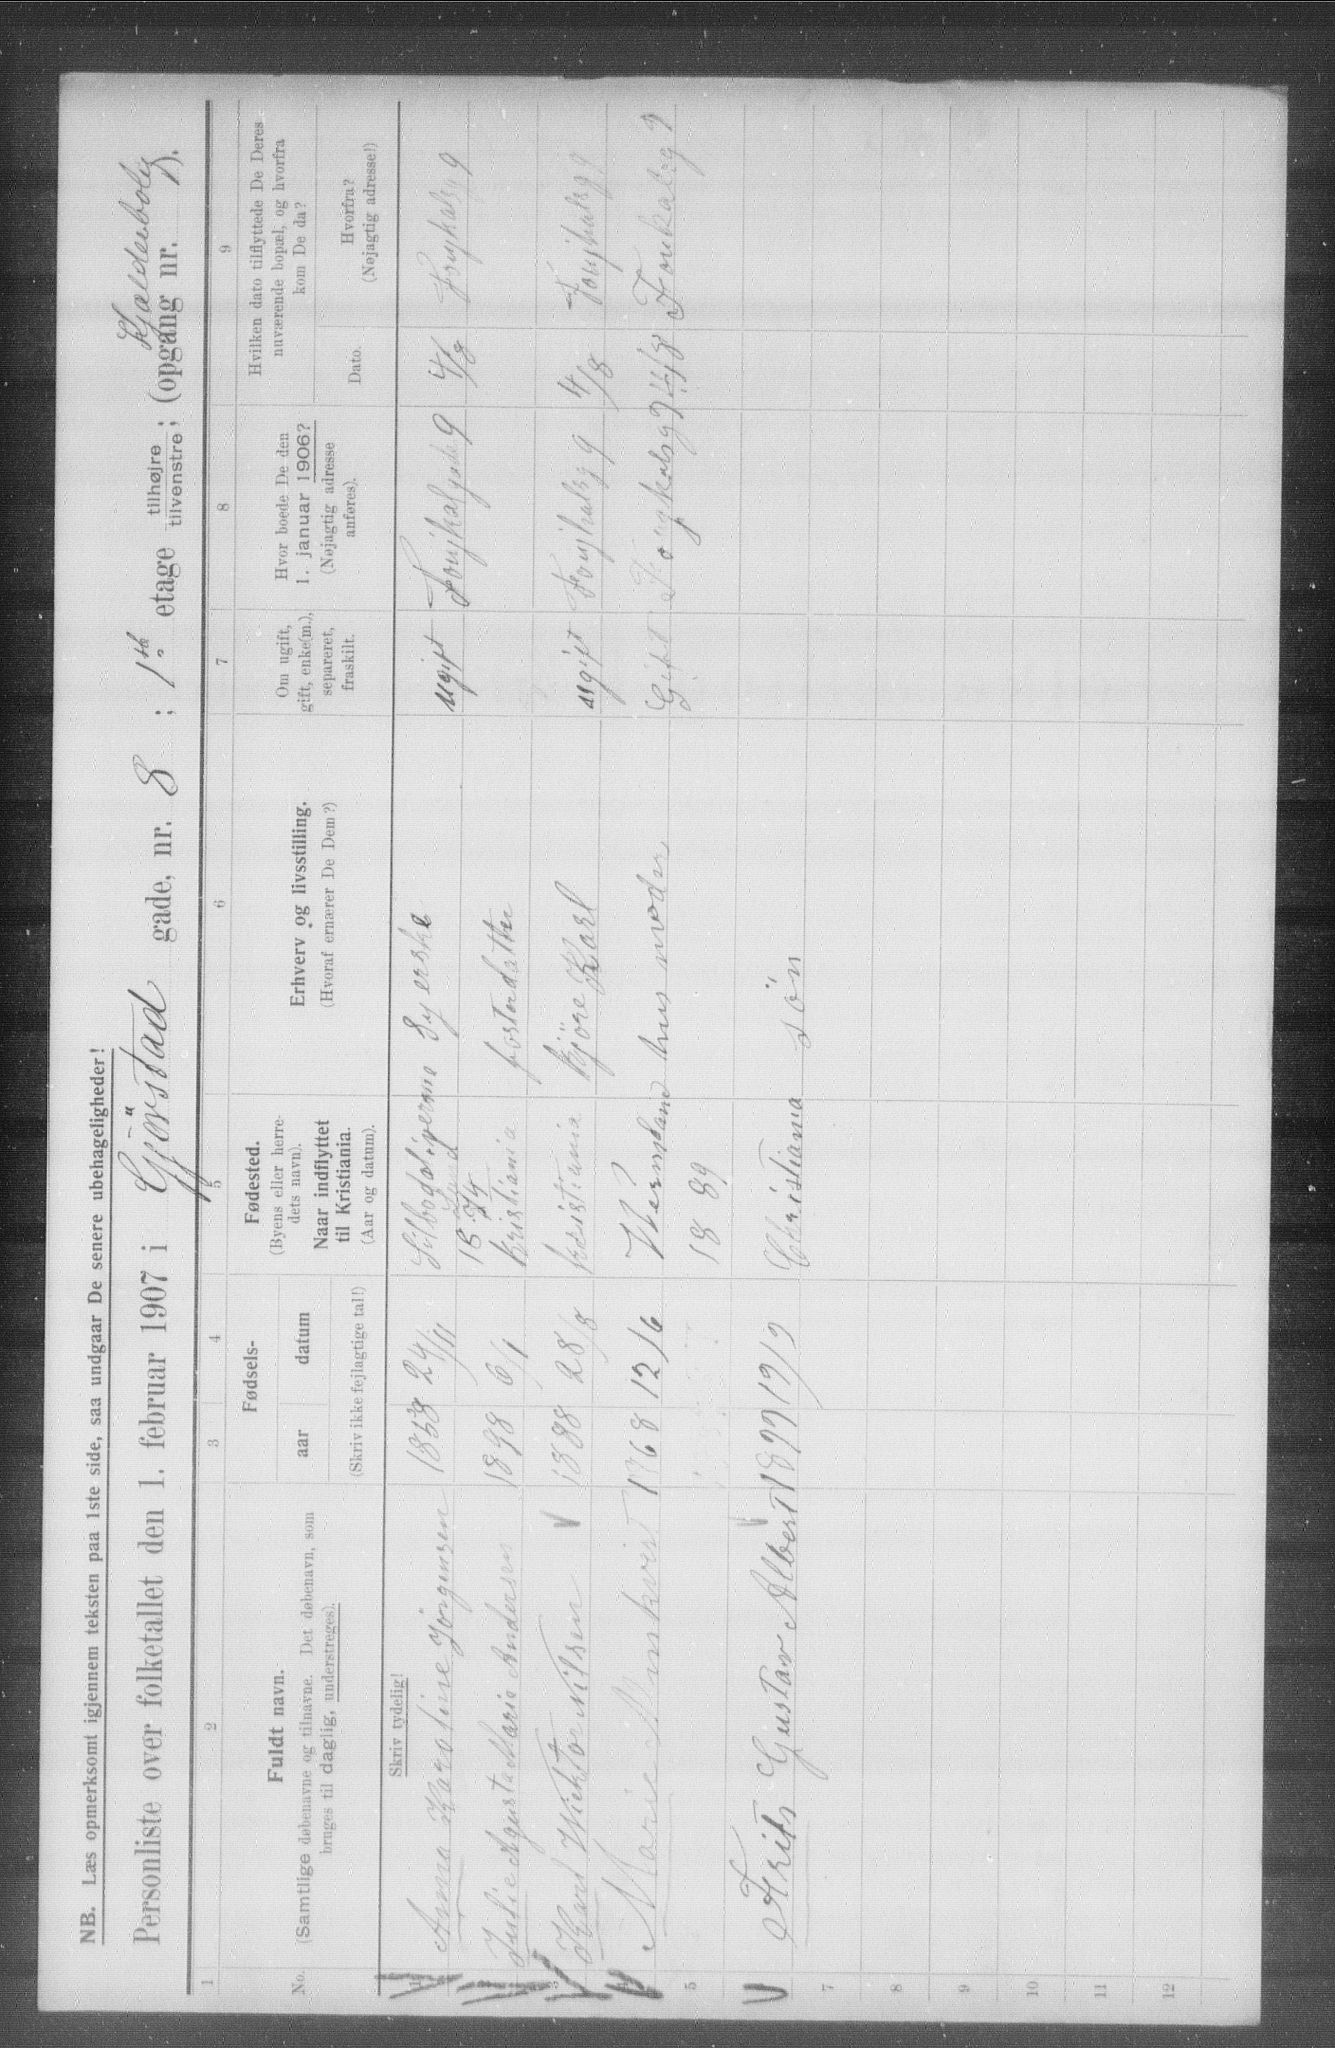 NB. Læs opmerksomt igjennem teksten paa 1ste side, saa undgaar De senere ubehageligheder!
Personliste over folketallet den 1. februar 1907 i Gjörstad gade, nr. 8 ; 1ste etage tilhøjre tilvenstre ; (opgang nr. ).
Kjælderbolig
1 2 3 4 5 6 7 8 9
No.
Fuldt navn.
(Samtlige døbenavne og tilnavne. Det døbenavn, som
bruges til daglig, understreges).
Fødsels-
aar datum
(Skriv ikke fejlagtige tal!)
Fødested.
(Byens eller herre-
dets navn).
Naar indflyttet
til Kristiania.
(Aar og datum).
Erhverv og livsstilling.
(Hvoraf ernærer De Dem?)
Om ugift,
gift, enke(m.),
separeret,
fraskilt.
Hvor boede De den
1. januar 1906?
(Nøjagtig adresse
anføres).
Hvilken dato tilflyttede De Deres
nuværende bopæl, og hvorfra
kom De da?
Dato.
Hvorfra?
(Nøjagtig adresse!)
Skriv tydelig!
1 Anna Karoline Jörgensen 1858 24/11 Syerske ugift 9 4/8 9
18 74
2 Julie Agusta Maria Andersen 1898 6/1 Kristiania fosterdatter
3 Karl Wicktor Nilsen 1888 28/8 Kristiania Kjöre Karl ugift 9 4/8 9
4 Marie 1868 12/6 Wermland husmoder Gift 9 4/8 9
5 18 89
Frits Gustav Albert 1899 19/9 Christiania sön
7
8
9
10
11
12